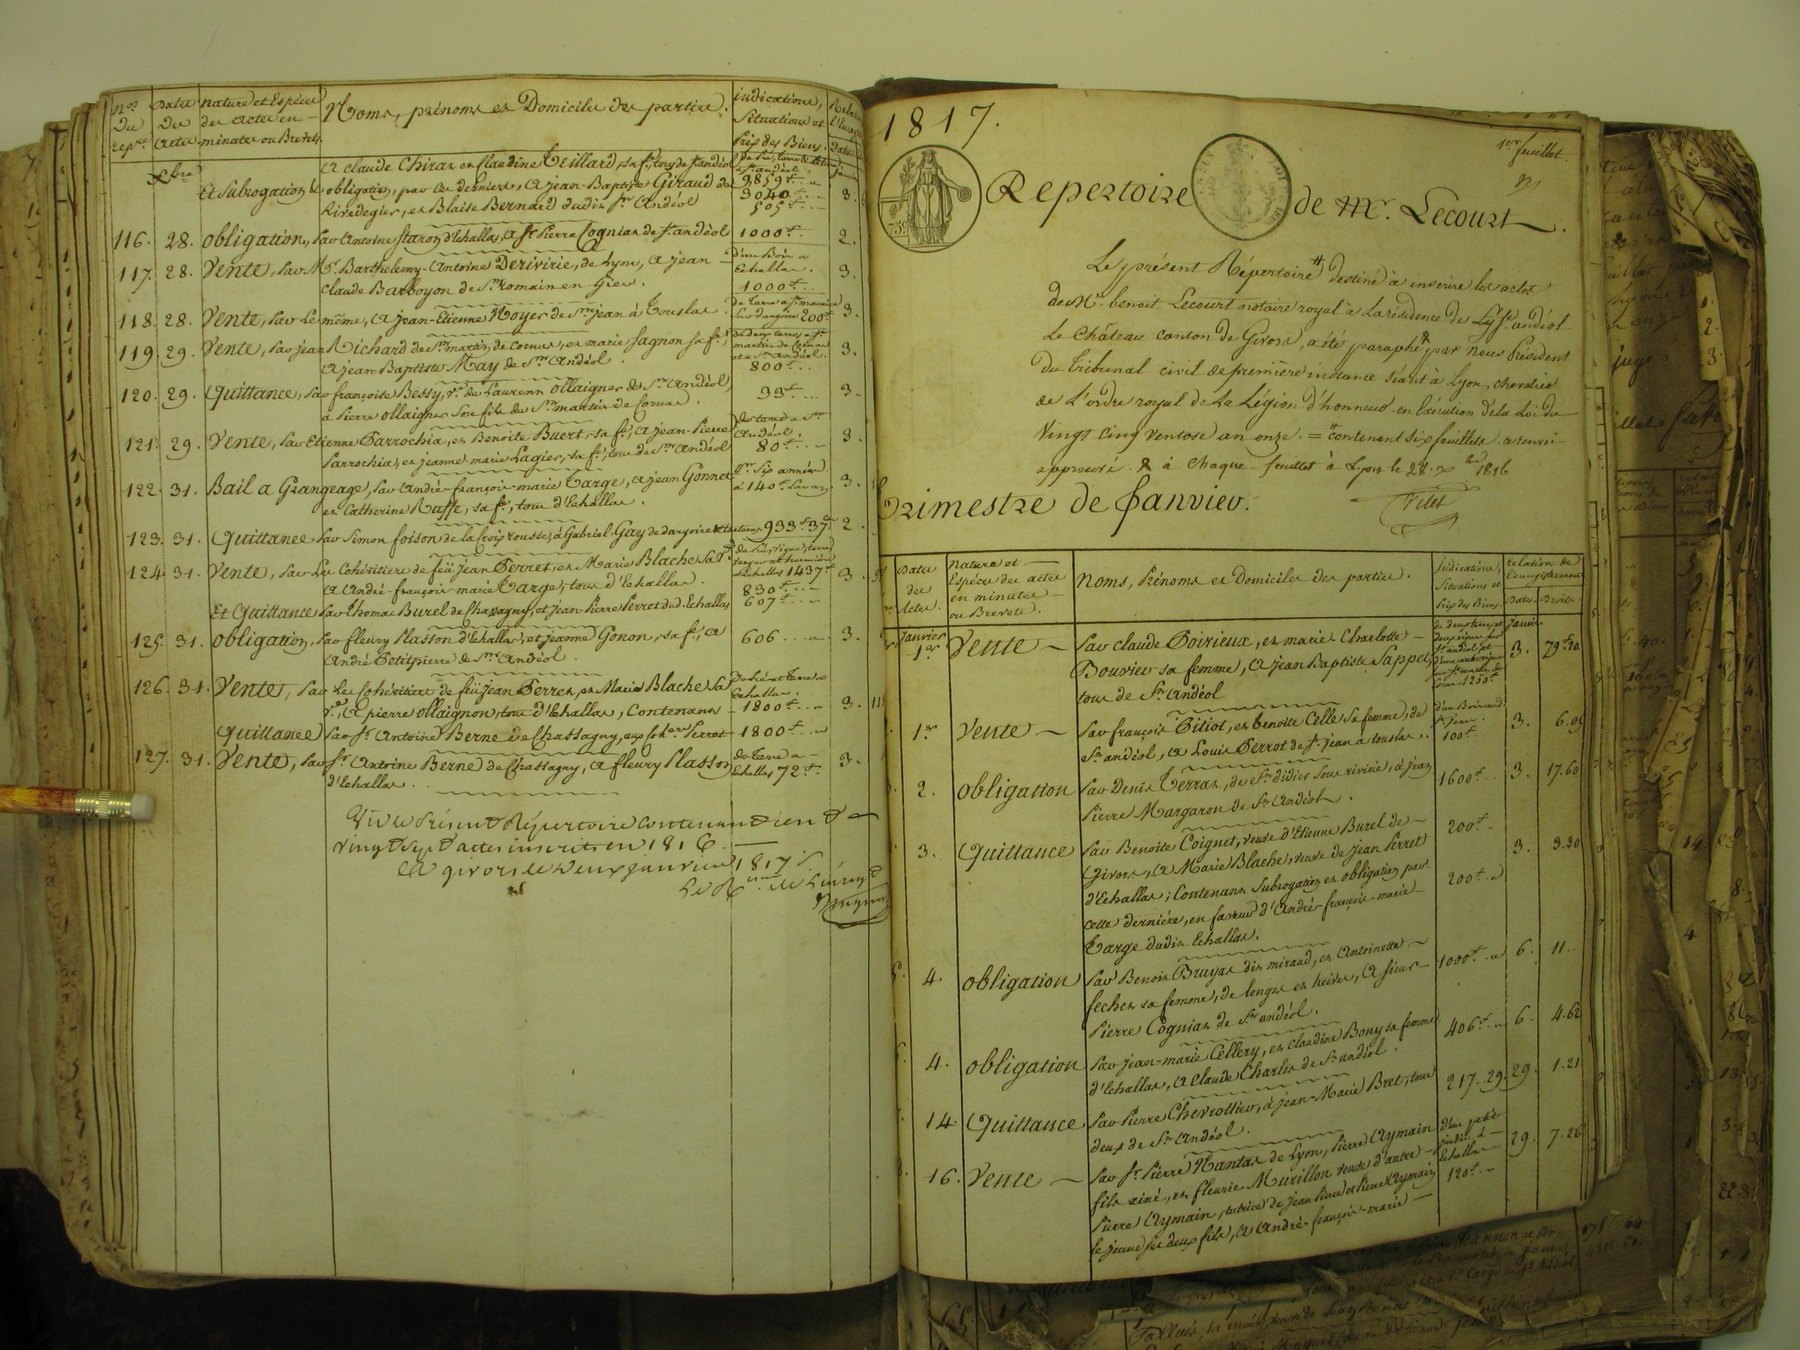 Nos Dates nature et Espèces Noms, prénoms et Domiciles des parties. indications,
Du Des des actes en Situations et
Repre. Actes minutes ou Brevets. Prix des Biens. Dates
Xbre
a claude Chirat et Claudine Teillard, sa fe, tous de st andéol
Et Subrogation & obligation, par ces derniers, a jean-Baptiste Giraud de 9859tt
Rivedegier, et Blaise Bernard dudit St Andéol 3040tt 3.
505tt
116. 28. obligation, Par Antoine d'Echallas, a Sr Pierre Cognias de st andéol 1000tt. 2.
117. 28. Vente, Par Mr. Barthelemy-Antoine Derivirie, de Lyon, a jean d'un Bois a
Claude Barboyon de St romain en Gier. Echallas. 3.
1000tt
118. 28. Vente, Par Le même, a jean-Etienne Noyer de St jean à Touslas. 200tt 3.
119. 29. Vente, Par jean Richard de St martin de Cornas, et marie fagnon sa fe, de deux terres a St
a jean Baptiste May de St Andéol. martin de Cornas et a St andéol. 3.
800tt
120. 29. Quittance, Par françoise Bessy, ve. de Laurent ollaignier de St Andéol, 33tt 3.
a Pierre ollaignier son fils de St martin de Cornas.
121. 29. Vente, Par Etienne Parrochia, et Benoite Buert, sa fe, a jean-Pierre de terre a St
Parrochia, et jeanne-marie Lagier, sa fe, tous de St Andéol Andéol. 3.
80tt
122. 31. Bail a Grangeage, Par André-françois-marie Targe, a jean Gonnet pr. Six années
et Catherine Raffe, sa fe, tous d'Echallas. à 140tt Par an. 3.
123. 31. Quittance Par Simon foison de la Croix rousse, à Gabriel Gay de dargoire 933tt 37c 2.
124. 31. Vente, Par Les Cohéritiers de feü jean Perret, et Marie Blache Sa ve.
a André-françois marie Targe, tous d'Echallas. Echallas 1437tt 3.
830tt
Et Quittance Par Thomas Burel de Chassagny, et jean-Pierre Perrot dud. Echallas 607tt
125. 31. obligation, Par fleury Plasson d'Echallas, et jeanne Gonon, sa fe, a 606 3.
André Petitpierre de St Andéol.
126. 31. Vente, Par Les Cohéritiers de feü jean Perret, et Marie Blache Sa de Pré et terre a
ve, a pierre ollaignon, tous d'Echallas, Contenant Echallas. 3.
1800tt
Quittance Par Sr. Antoine Berne de Chassagny, aux Coherrs Perrot 1800tt
127. 31. Vente, Par Sr Antoine Berne de Chassagny, a fleury Plasson de terre a
d'Echallas. Echallas 72tt 3.
Vu le Présent Répertoire contenant cent
vingt Sept actes inscrits en 1816.
A givors le deux janvier 1817.
1817. 1er feuillet
Repertoire de Mr. Lecourt.
Le présent Répertoire # destiné à inscrire les actes
de Mr. benoit Lecourt notaire royal à La résidence de St. andéol
Le Château canton de Givors, a été paraphé par Nous Président
du Tribunal civil de première instance séant à Lyon, chevalier
de L'ordre royal de La Légion d'honneur en exécution de la Loi du
Vingt Cinq ventose an onze. = # contenant Six feuillets ce renvoi
approuvé. & à Chaque feuillet à Lyon le 28. Xbre 1816
Trimestre de Janvier.
Dates Nature et Noms, Prénoms et Domiciles des parties. Indications, relation de
des Espèces des actes Situations et L'enregistrement
Actes. en minutes Prix des Biens. Dates. Droits.
ou Brevets.
Janvier Janvier
1er Vente Par Claude Poirieux, et marie Charlotte 3. 79tt.20
Bouvier sa femme, a jean Baptiste Pappet,
tous de St Andéol
1er Vente Par françois Pitiot, et benoite Celle sa femme, de 3. 6.05
St andéol, a Louis Perrot de St. jean a touslas. 100tt
2. obligation Par Denis Terras, de St didier Sous riviére, à jean 1600tt 3. 17.60
Pierre Margaron de St Andéol.
3. Quittance Par Benoite Coignet, veuve d'Etienne Burel de 200tt 3. 3.30
Givors, a Marie Blache, veuve de jean Perret
d'Echallas; Contenant Subrogation et obligation par 200tt
cette dernière, en faveur d'André-françois-marie
Targe dudit Echallas.
4. obligation Par Benoit Bruyas dit miraud, et Antoinette 1000tt 6. 11
fechet sa femme, de longes et treives, a Sieur
Pierre Cognias de St andéol.
4. obligation Par jean-marie Cellery, et claudine Bony sa femme 406tt 6. 4.62
d'Echallas, a Claude Charlis de St andéol.
14. Quittance Par Pierre Chevrottier, à jean-Marie Bret, tous 217.29. 29. 1.21
deux de St Andéol.
16. Vente Par Sr Pierre Nantas de Lyon, Pierre Aymain d'un petit 29. 7.26
fils ainé, et fleurie Murillon veuve d'autre jardin à
Pierre Aymain, tutrice de jean Pierre et Pierre Aymain Echallas
le jeune ses deux fils, a André-françois-marie 120tt